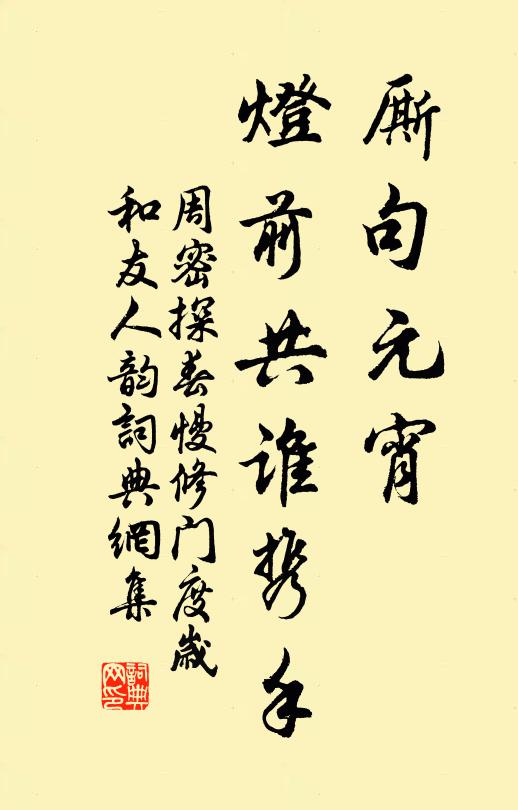 厮句元宵
燈前共誰携手
周密探春慢修门度嵗
和友人韵詞典網集
詞典网印